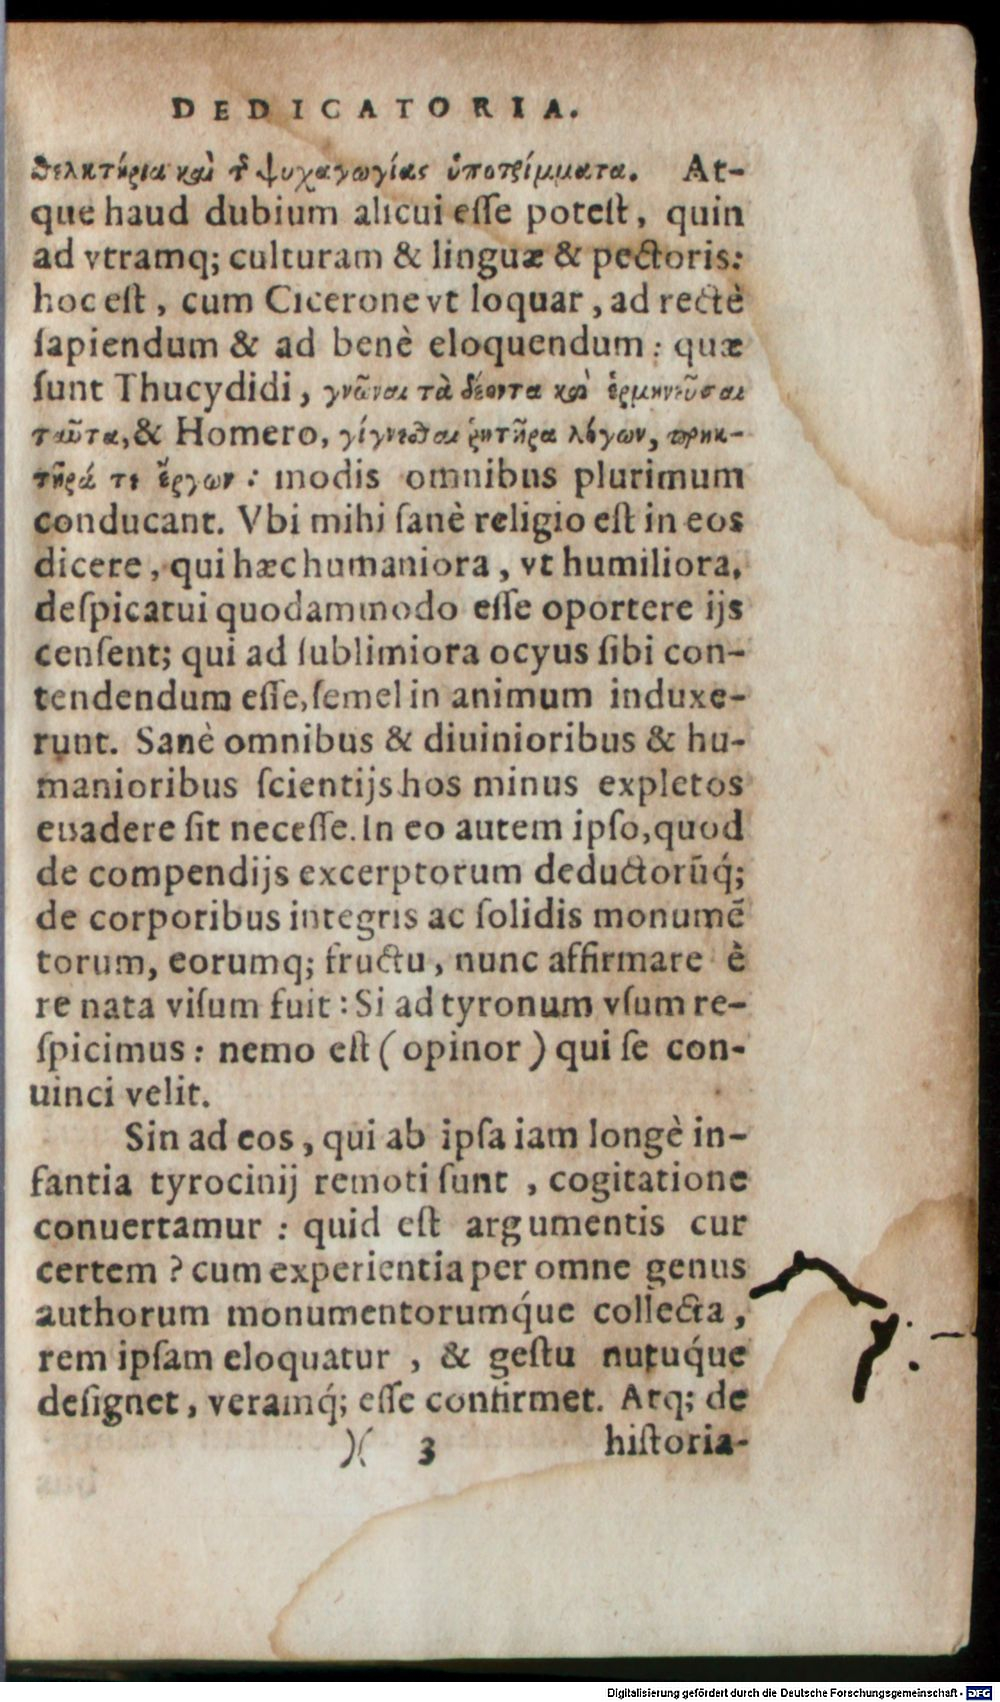 DEDICATORIA.
θελκτήρια καὶ τ̃ ψυχαγωγίας ὑποτρίμματα. At-
que haud dubium alicui eſſe poteſt, quin
ad vtramq; culturam & linguæ & pectoris:
hoc eſt, cum Cicerone vt loquar, ad rectè
ſapiendum & ad benè eloquendum: quæ
ſunt Thucydidi, γνῶναι τὰ δέοντα καὶ ἑρμηνεῦσαι
ταῦτα, & Homero, γίγνεσθαι ῥητῆρα λόγων, πρηκ-
τῆρά τε ἔργων: modis omnibus plurimum
conducant. Vbi mihi ſanè religio eſt in eos
dicere, qui hæc humaniora, vt humiliora,
deſpicatui quodammodo eſſe oportere ijs
cenſent; qui ad ſublimiora ocyus ſibi con-
tendendum eſſe, ſemel in animum induxe-
runt. Sanè omnibus & diuinioribus & hu-
manioribus ſcientijs hos minus expletos
euadere ſit neceſſe. In eo autem ipſo, quod
de compendijs excerptorum deductorūq́;
de corporibus integris ac ſolidis monumē
torum, eorumq; fructu, nunc affirmare è
re nata viſum fuit: Si ad tyronum vſum re-
ſpicimus: nemo eſt (opinor) qui ſe con-
uinci velit.
Sin ad eos, qui ab ipſa iam longè in-
fantia tyrocinij remoti ſunt, cogitatione
conuertamur: quid eſt argumentis cur
certem? cum experientia per omne genus
authorum monumentorumq́ue collecta,
rem ipſam eloquatur, & geſtu nutuq́ue
deſignet, veramq́; eſſe confirmet. Atq; de
)( 3 hiſtoria-
Digitalisierung gefördert durch die Deutsche Forschungsgemeinschaft - DFG